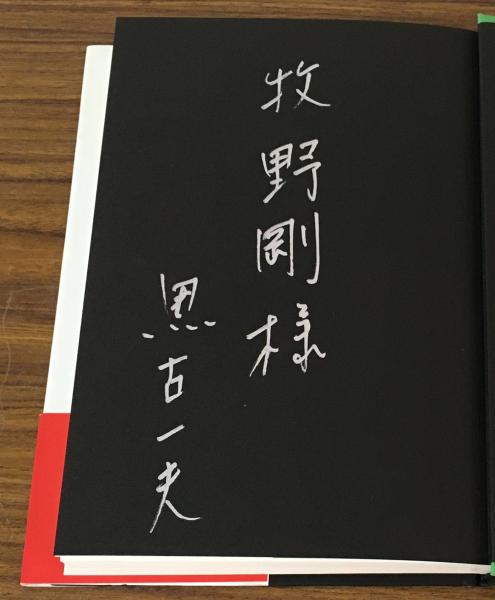 牧野剛様
黒古一夫